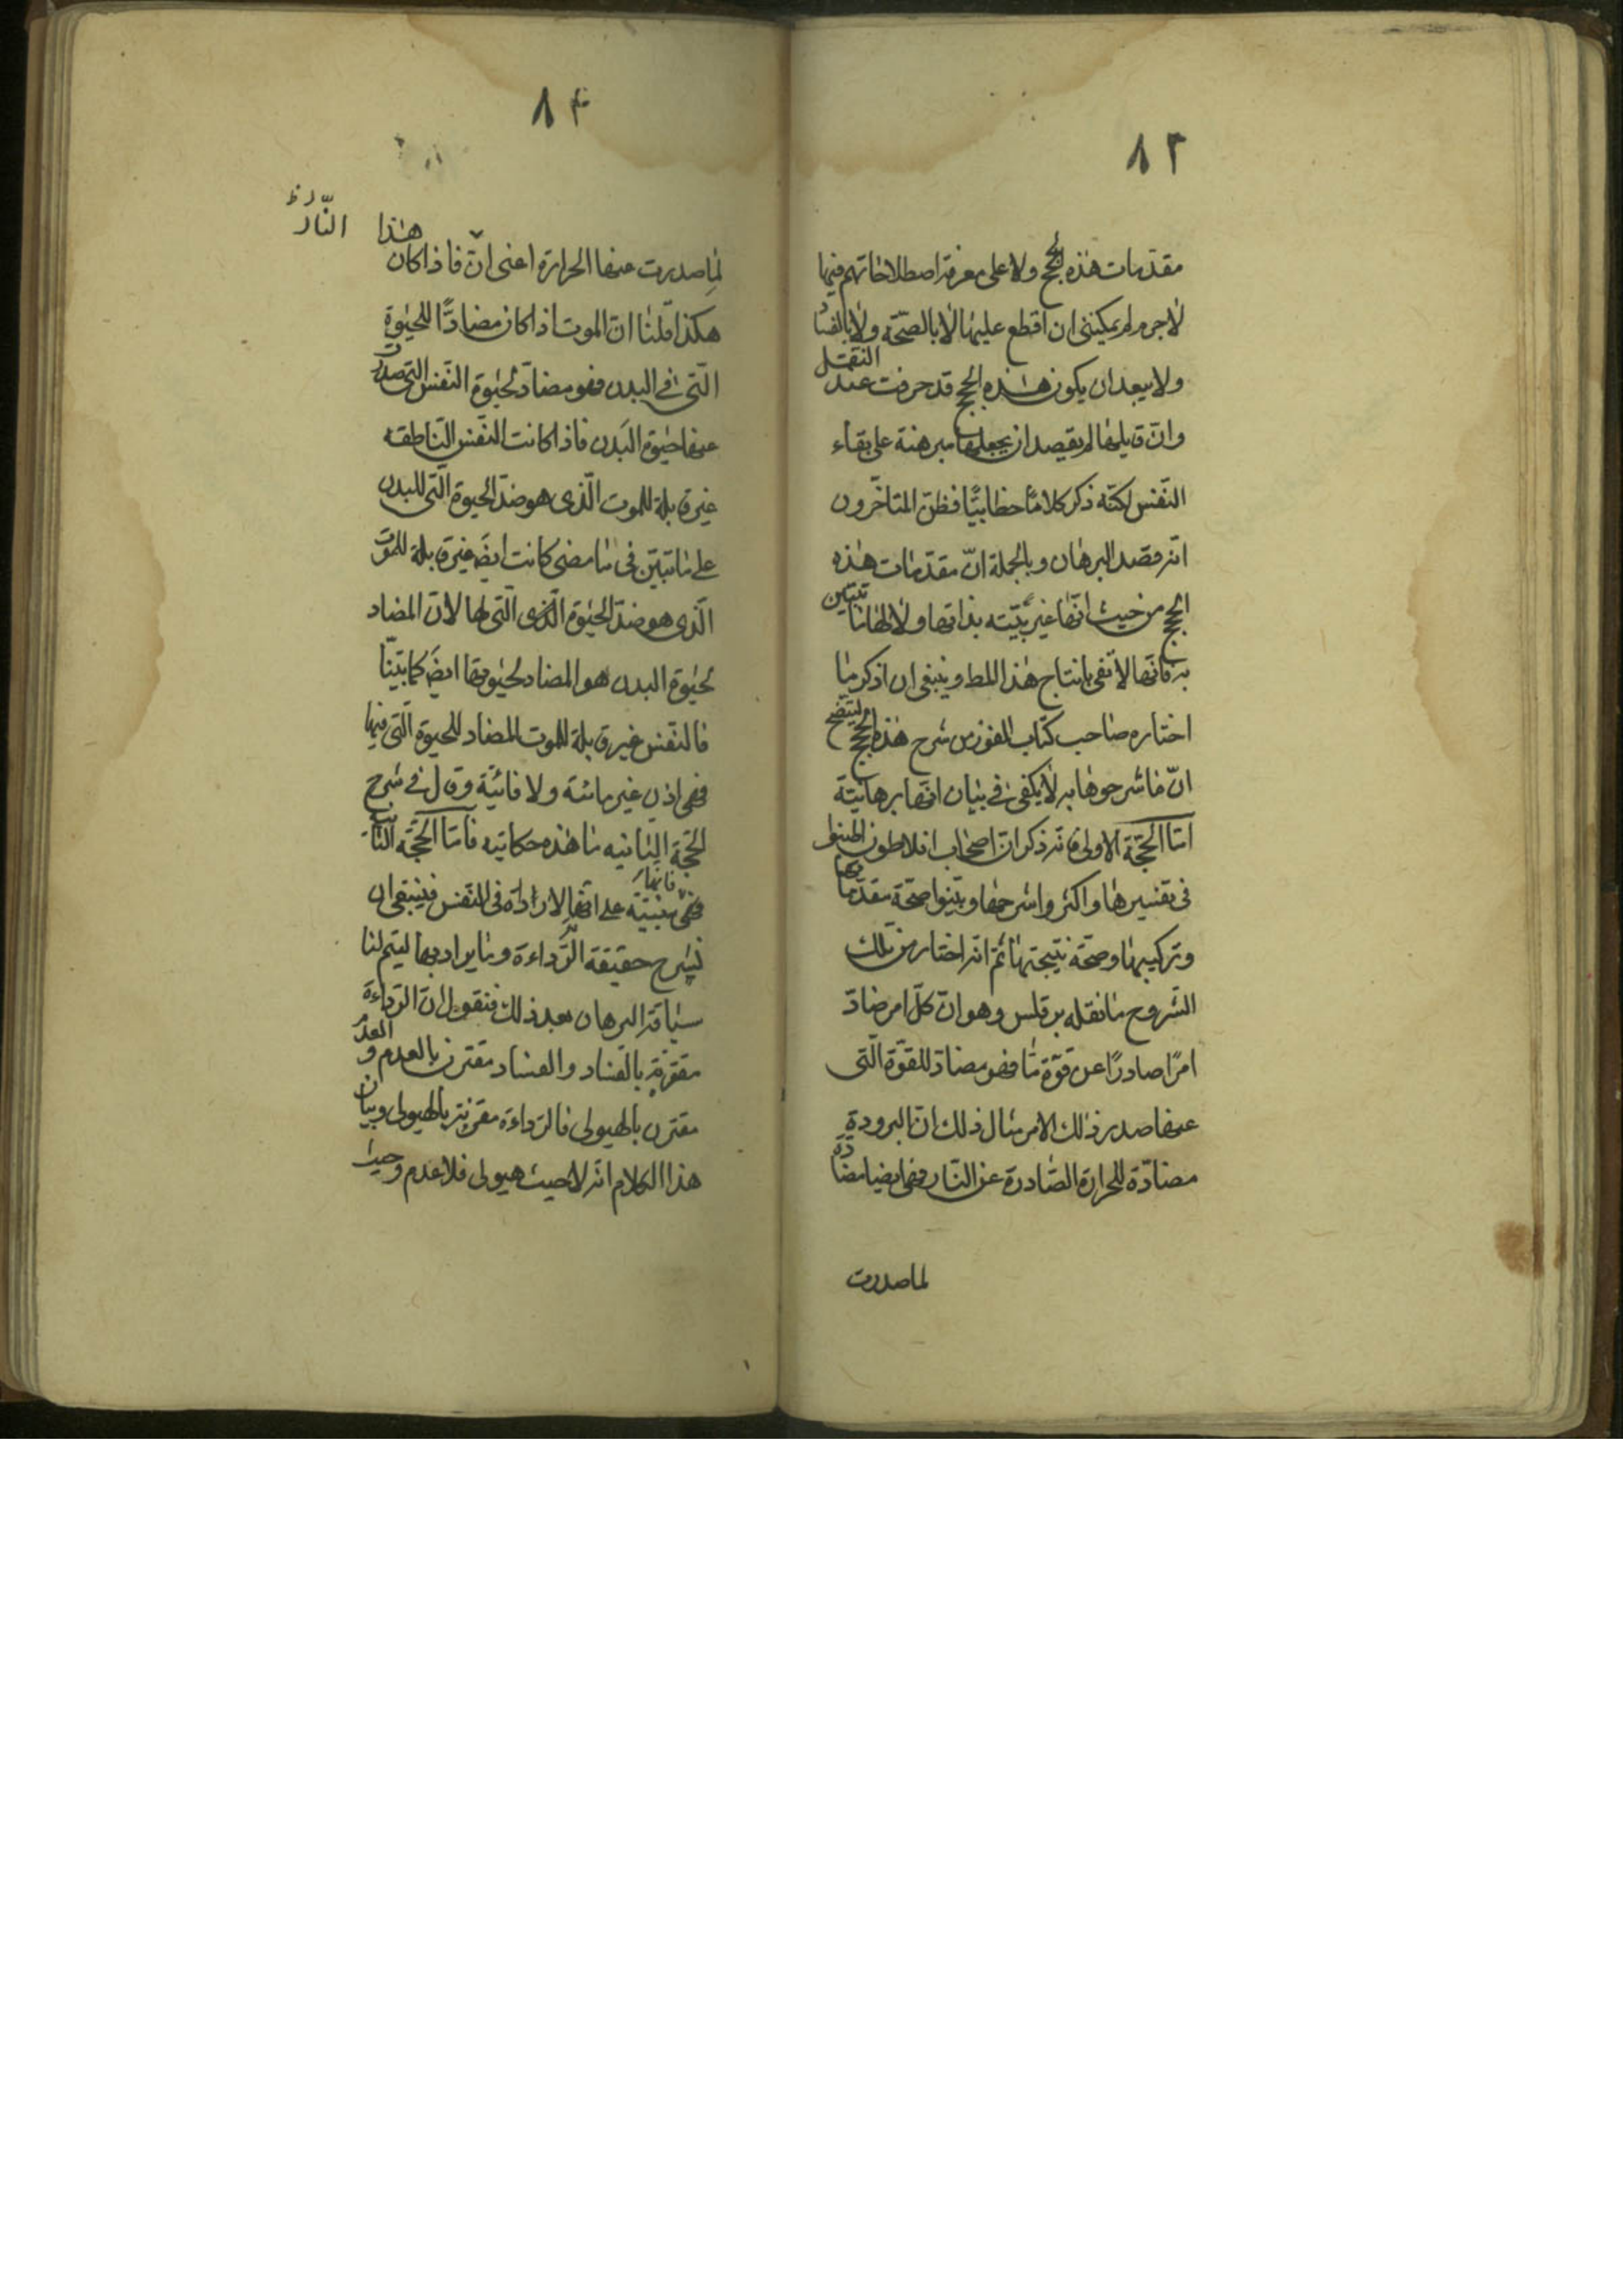 ٨٣
مقدّمات هذه الحجج ولا على معرفة اصطلاحاتهم فيها
لاجرم لم يمكننى ان اقطع عليها لا بالصحّة ولا بالفساد
ولا يبعد ان يكون هذه الحجج قد حرفت عند النقل
وانّ قايلها لم يقصد ان يجعلها مبرهنة على بقاء
النّفس لكنّه ذكر كلاما خطابيّا فظنّ المتاخّرون
انّه قصد البرهان وبالجملة انّ مقدّمات هذه
الحجج من حيث انّها غير بيّنه بذاتها ولا لها ما تتبيّن
به فانّها لا تفى بانتاج هذا المط وينبغى ان اذكر ما
اختاره صاحب كتاب الفوز من شرح هذه الحجج ليتّضح
انّ ما شرحوها به لا يكفى فى بيان انّها برهانيّة
امّا الحجّة الاولى فانّه ذكر انّ اصحاب افلاطون اطنبوا
فى تفسيرها واكثروا شرحها وبيّنوا صحّة مقدّماتها
وتركيبها وصحّة نتيجتها ثمّ انّه اختار من تلك
الشّروح ما نقله برقلس وهو انّ كلّ امر ضادّ
امرًا صادرًا عن قوّة مّا فهو مضادّ للقوّة الّتى
عنها صدر ذلك الامر مثال ذلك انّ البرودة
مضادّة للحرارة الصّادرة عن النّار فهى ايضا مضادّة
لما صدرت
٨٤
لما صدرت عنها الحرارة اعنى انّ فاذا كان هذا النّار ظ
هكذا قلنا انّ الموت اذا كان مضادًّا للحيوة
الّتى فى البدن فهو مضادّ لحيوة النّفس الّتى صدرت
عنها حيوة البدن فاذا كانت النّفس النّاطقه
غير قابلة للموت الّذى هو ضدّ الحيوة الّتى للبدن
على ما تبيّن فى ما مضى كانت ايضَ غير قابلة للموت
الّذى هو ضدّ الحيوة الّذى الّتى لها لانّ المضاد
لحيوة البدن هو المضاد لحيوتها ايضَ كما بيّنّا
فالنفس غير قابلة للموت المضاد للحيوة الّتى فيها
فهى اذن غير مائتة ولا فانيّة وقال فى شرح
الحجّة الثانيه ما هذه حكايته فامّا الحجّة الثانية
فهى مبنيّة على انّها لا رداءة فى النّفس فينبغى ان فانّها
نشرح حقيقة الرّداءة وما يراد بها ليتم لنا
سياقة البرهان بعد ذلك فنقول انّ الرّداءة
مقترنة بالفساد والفساد مقترن بالعدم والعدم
مقترن بالهيولى فالرّداءة مقترنة بالهيولى وبيان
هذا الكلام انّه لا حيث هيولى فلا عدم وحيث